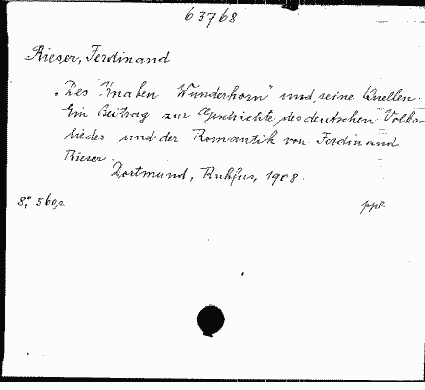 63768
Rieser, Ferdinand
„Des Knaben Wunderhorn" und seine Quellen.
Ein Beitrag zur Geschichte des deutschen Volks-
liedes und der Romantik von Ferdinand
Rieser.
Dortmund, Ruhfus, 1908.
8°, 560 s. ppl.